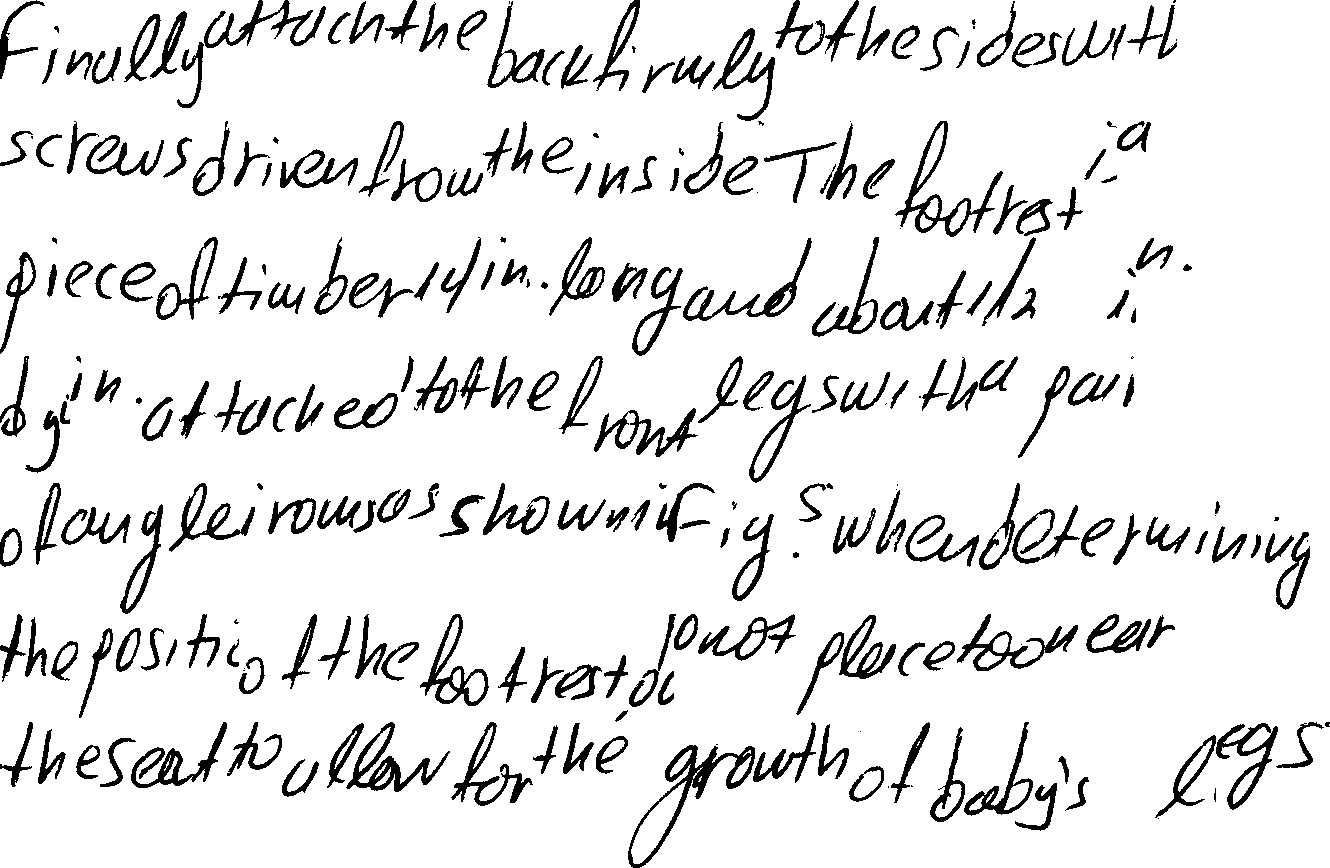 Finally attach the back firmly to the sides with
screws driven from the inside The footrest i a
piece of timber 14 in. long and about 1 1/2 in.
by in. attached to the front legs with a pair
of angle irons as shown in Fig. 5. when determining
the positio of the footrest, do not place too near
the seat to allow for the growth of baby's legs